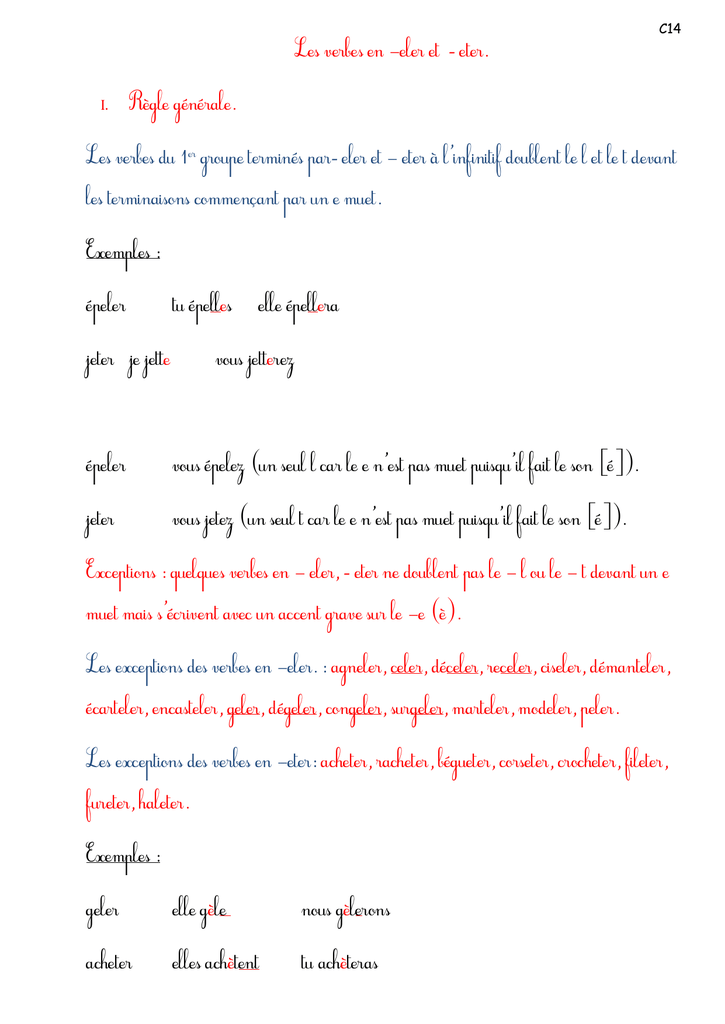 C14
Les verbes en –eler et - eter.
I. Règle générale.
Les verbes du 1er groupe terminés par- eler et – eter à l'infinitif doublent le l et le t devant
les terminaisons commençant par un e muet.
Exemples :
épeler tu épelles elle épellera
jeter je jette vous jetterez
épeler vous épelez (un seul l car le e n'est pas muet puisqu'il fait le son [é]).
jeter vous jetez (un seul t car le e n'est pas muet puisqu'il fait le son [é]).
Exceptions : quelques verbes en – eler, - eter ne doublent pas le – l ou le – t devant un e
muet mais s'écrivent avec un accent grave sur le –e (è).
Les exceptions des verbes en –eler. : agneler, celer, déceler, receler, ciseler, démanteler,
écarteler, encasteler, geler, dégeler, congeler, surgeler, marteler, modeler, peler.
Les exceptions des verbes en –eter: acheter, racheter, bégueter, corseter, crocheter, fileter,
fureter, haleter.
Exemples :
geler elle gèle nous gèlerons
acheter elles achètent tu achèteras